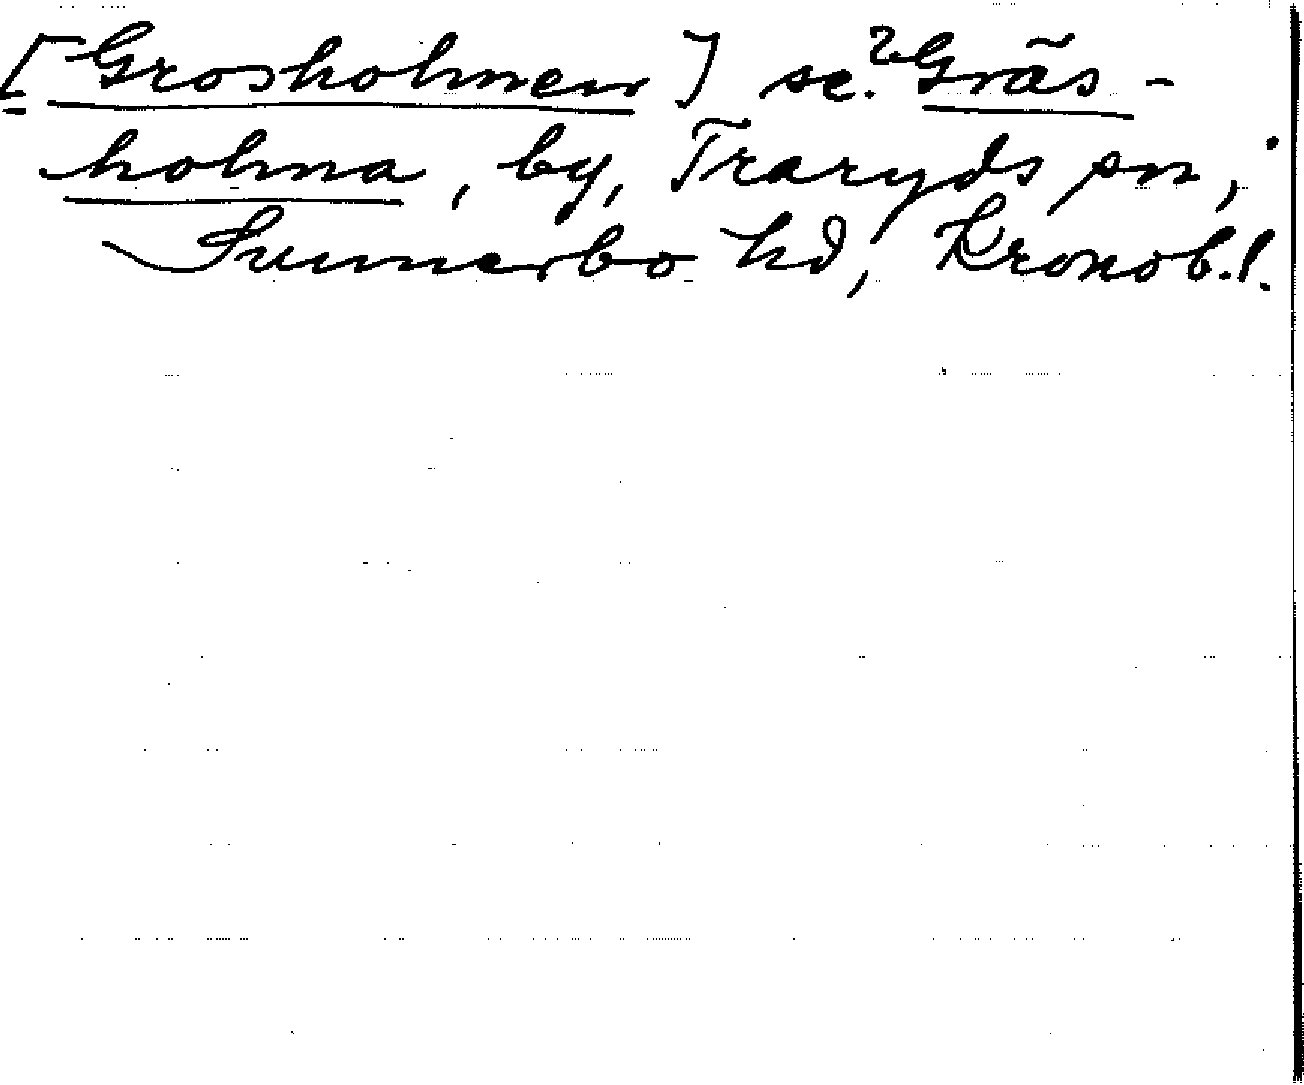 [Grosholmen] se ?Gräs-
holma, by, Traryds sn,
Sunnerbo hd, Kronob.l.